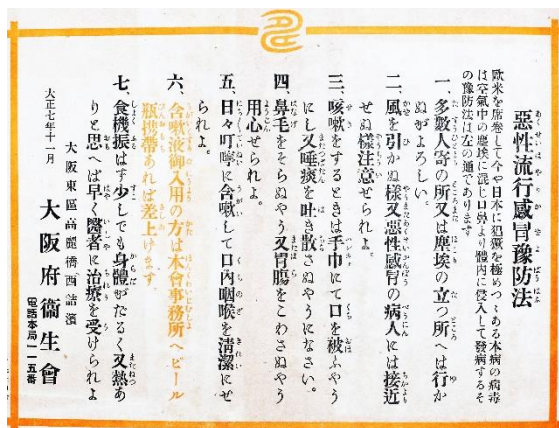 惡性流行感冒豫防法
歐米を席巻して今や日本に猖獗を極めつゝある本病の病毒
は空氣中の塵埃に混じ口鼻より體內に侵入して發病するそ
の豫防法は左の通であります
一、多數人寄の所又は塵埃の立つ所へは行か
ぬがよろしい。
二、風を引かぬ樣又惡性感冒の病人には接近
せぬ樣注意せられよ。
三、咳嗽をするときは手巾にて口を被ふやう
にし又唾痰を吐き散さぬやうになさい。
四、鼻毛をそらぬやう又胃腸をこわさぬやう
用心せられよ。
五、日々叮嚀に含嗽して口內咽喉を淸潔にせ
られよ。
六、含嗽液御入用の方は本會事務所へビール
瓶携帶あれば差上けます。
七、食機振はす少しでも身體がたるく又熱あ
りと思へば早く醫者に治療を受けられよ
大正七年十一月
大阪東區高麗橋西詰濱
大阪府衞生會
電話本局一一五番